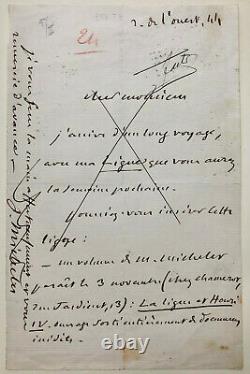 r. de l'ouest, 44
24
cher monsieur
j'arrive d'un long voyage,
avec ma Ligue que vous aurez
la semaine prochaine.
pourriez-vous insérer cette
ligne :
- un volume de M. Michelet
paraît le 3 novembre (chez chamerot,
rue du Jardinet, 13) : La ligue et Henri
IV. ouvrage sorti entièrement de documens
inédits -
je vous serre la main affectueusement et vous
remercie d'avance -
J. Michelet